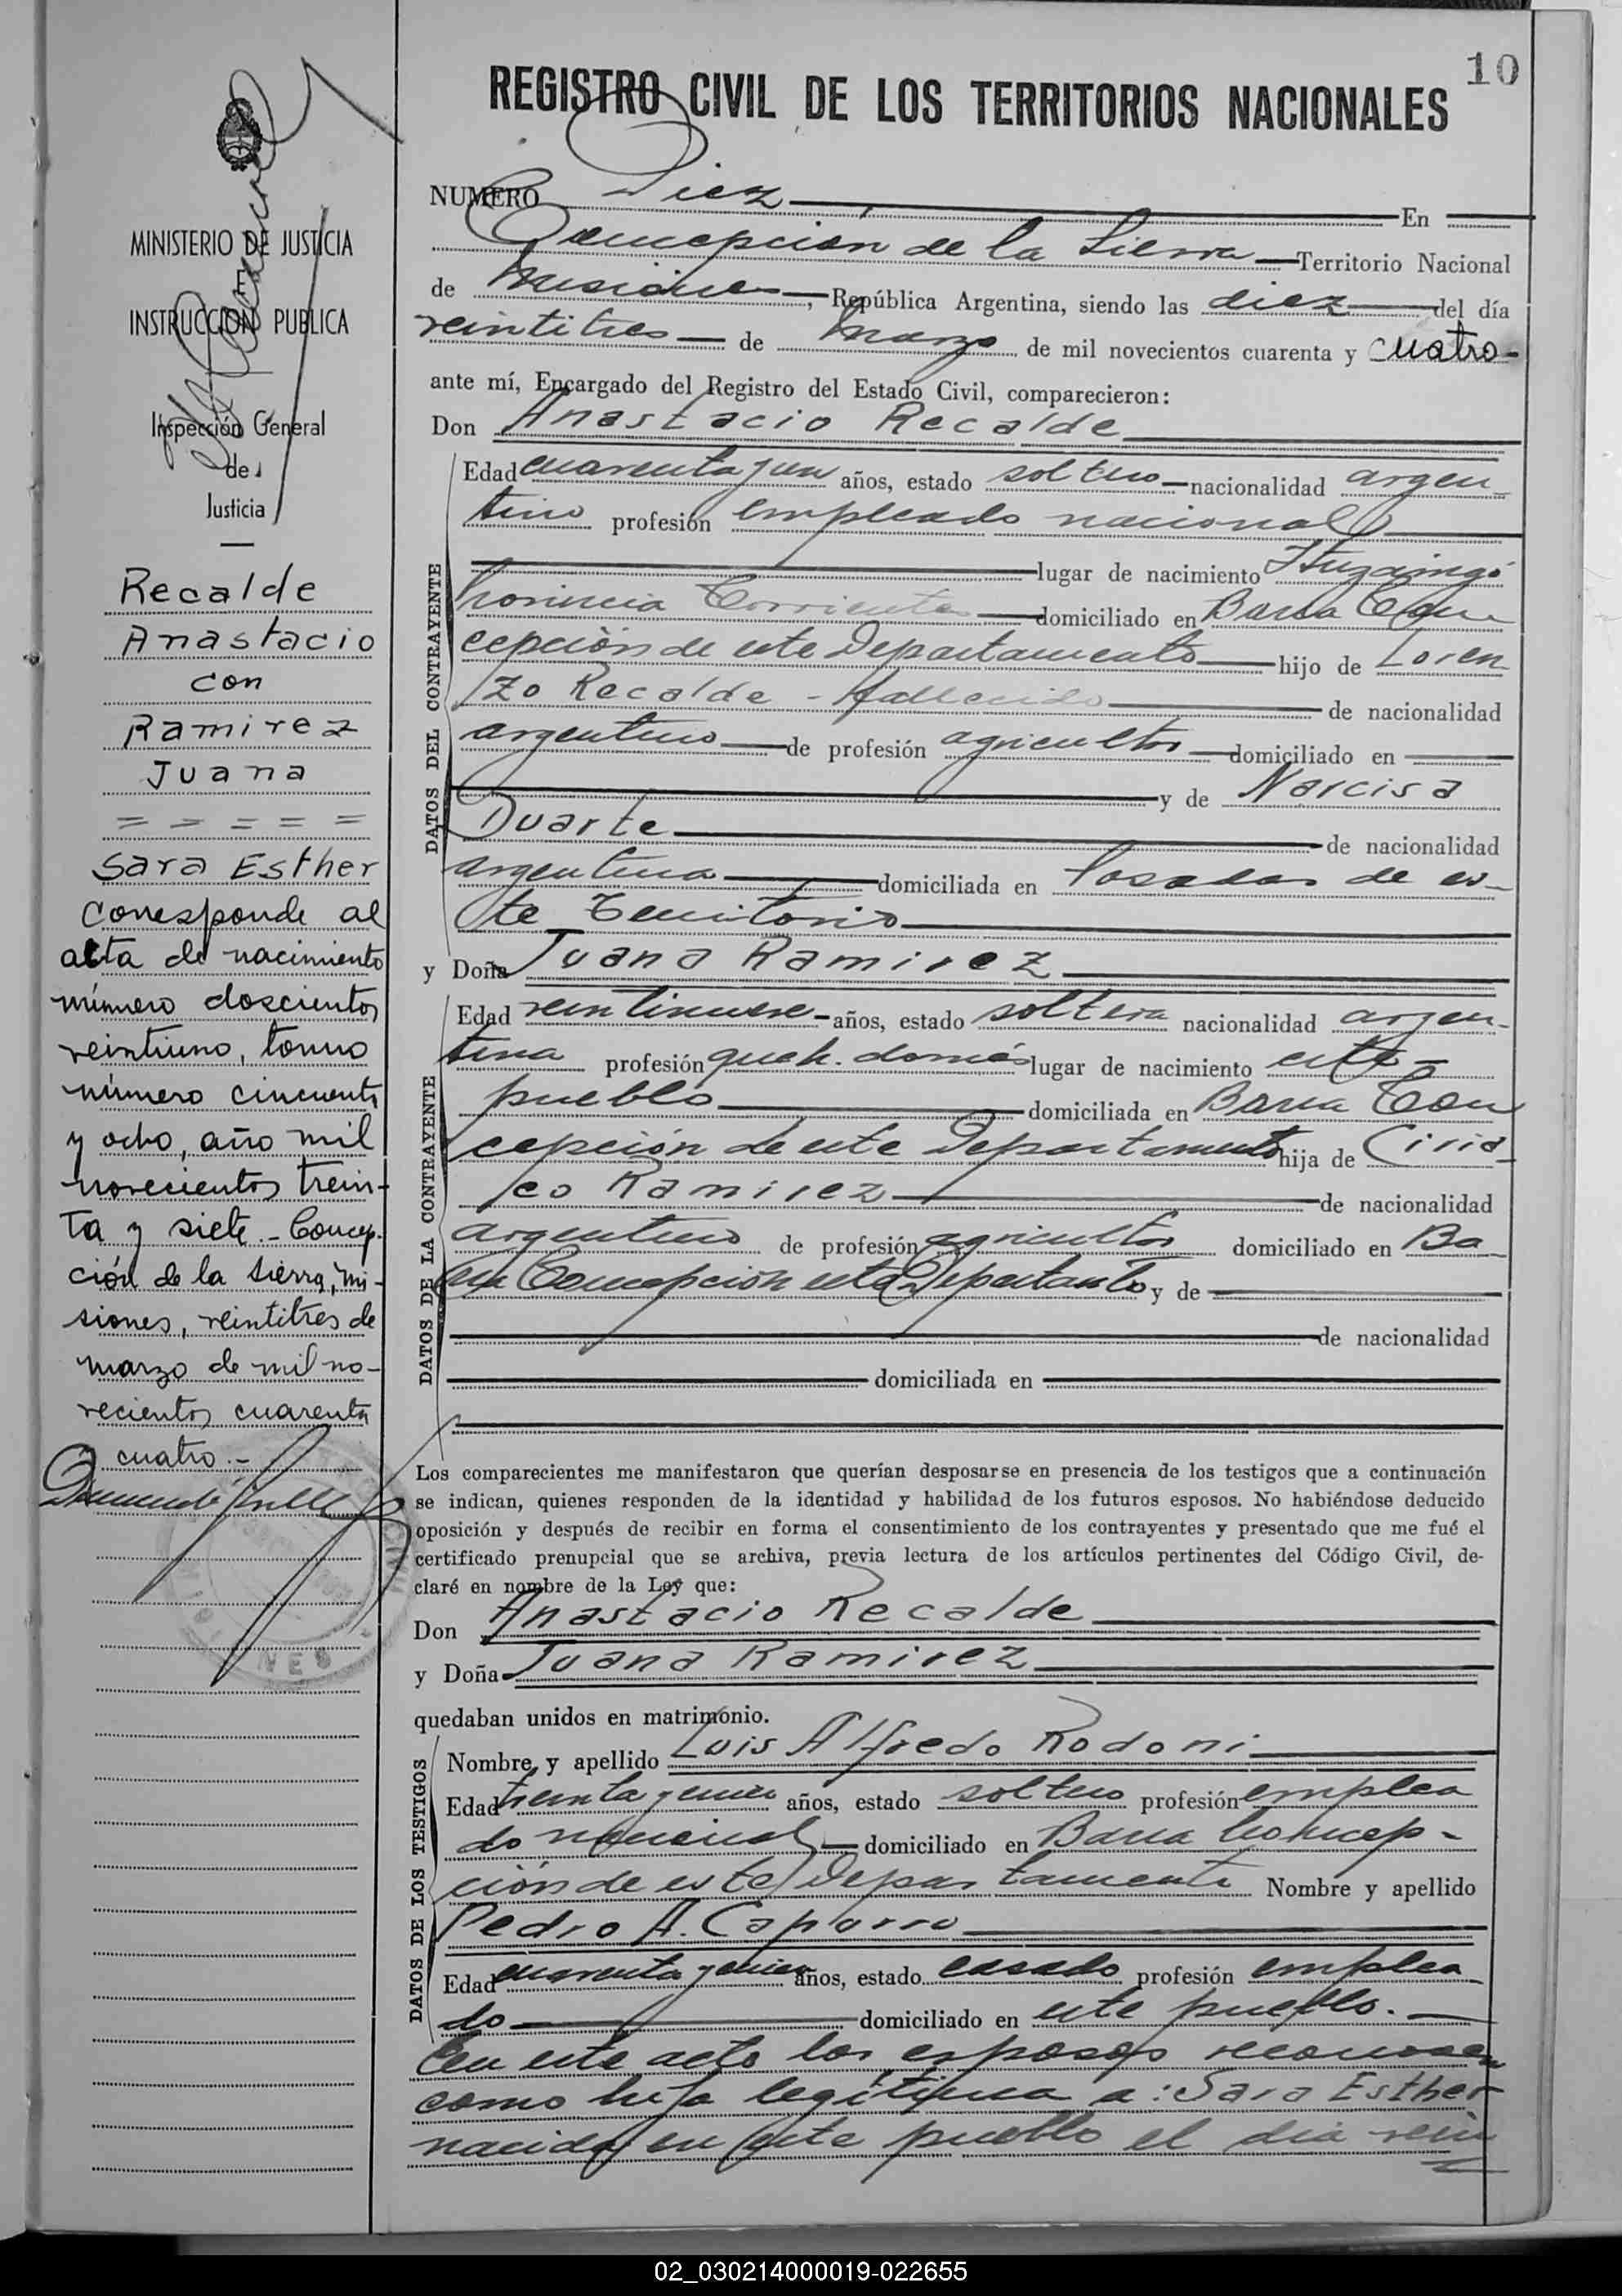 10
REGISTRO CIVIL DE LOS TERRITORIOS NACIONALES
MINISTERIO DE JUSTICIA
E
INSTRUCCIÓN PUBLICA
Inspección General
de
Justicia
Recalde
Anastacio
con
Ramirez
Juana
= = = = =
Sara Esther
Corresponde al
acta de nacimiento
número doscientos
veintiuno, tomo
número cincuenta
y ocho, año mil
novecientos trein-
ta y siete.- Concep-
ción de la Sierra, Mi-
siones, veintitres de
marzo de mil no-
vecientos cuarenta
y cuatro.-
NUMERO Diez En
Concepción de la Sierra Territorio Nacional
de Misiones, República Argentina, siendo las diez del día
veintitres de Marzo de mil novecientos cuarenta y cuatro-
ante mí, Encargado del Registro del Estado Civil, comparecieron:
Don Anastacio Recalde
DATOS DEL CONTRAYENTE
Edad cuarenta y un años, estado soltero nacionalidad argen-
tino profesión empleado nacional
lugar de nacimiento Ituzaingó
Provincia Corrientes domiciliado en Barra Con
cepción de este Departamento hijo de Loren
zo Recalde - fallecido de nacionalidad
argentino de profesión agricultor domiciliado en
y de Narcisa
Duarte de nacionalidad
argentina domiciliada en Posadas de es-
te Territorio
y Doña Juana Ramirez
DATOS DE LA CONTRAYENTE
Edad veintinueve- años, estado soltera nacionalidad argen-
tina profesión queh. domés lugar de nacimiento este
pueblo domiciliada en Barra Con
cepción de este Departamento hija de Ciria-
co Ramirez de nacionalidad
argentino de profesión agricultor domiciliado en Ba
rra Concepción este Departamto y de
de nacionalidad
domiciliada en
Los comparecientes me manifestaron que querían desposarse en presencia de los testigos que a continuación
se indican, quienes responden de la identidad y habilidad de los futuros esposos. No habiéndose deducido
oposición y después de recibir en forma el consentimiento de los contrayentes y presentado que me fué el
certificado prenupcial que se archiva, previa lectura de los artículos pertinentes del Código Civil, de-
claré en nombre de la Ley que:
Don Anastacio Recalde
y Doña Juana Ramirez
quedaban unidos en matrimonio.
DATOS DE LOS TESTIGOS
Nombre y apellido Luis Alfredo Rodoni
Edad treinta y años, estado soltero profesión emplea
do nacional domiciliado en Barra Concep-
ción de este Departamento Nombre y apellido
Pedro A. Caporro
Edad cuarenta y años, estado casado profesión emplea
do domiciliado en este pueblo.
En este acto los esposos reconocen
como hija legítima a: Sara Esther
nacida en este pueblo el dia vein
02_030214000019-022655